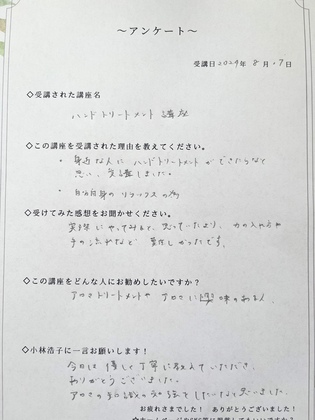 ～アンケート～
受講日2024年 8月17日
◇受講された講座名
ハンドトリートメント 講座
◇この講座を受講された理由を教えてください。
・身近な人に ハンドトリートメントが できたらなと
思い、受講しました。
・自分自身の リラックスの為
◇受けてみた感想をお聞かせください。
実際にやってみると 思っていたより、力の入れ方や
手の流れなど 難しかったです。
◇この講座をどんな人にお勧めしたいですか？
アロマトリートメントや アロマに興味のある人。
◇小林浩子に一言お願いします！
今日は優しく丁寧に教えていただき、
ありがとうございました。
アロマの知識も勉強してしたいなと思いました。
お疲れさまでした！ ありがとうございました！